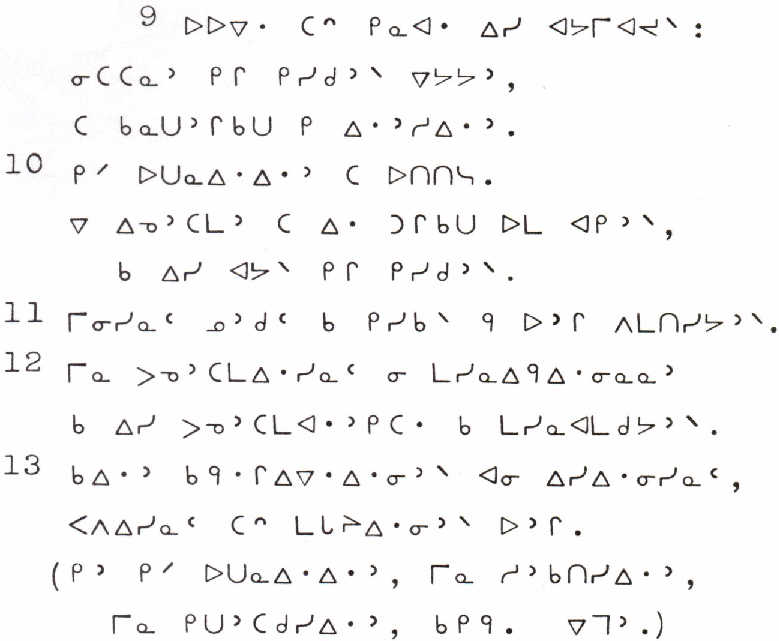 9 ᐅᐅᐁᐧ ᑕᐢ ᑭᓇᐊᐧ ᐃᓯ ᐊᔭᒥᐊᔪᐠ:
ᓂᑕᑕᓇᐣ ᑭᒋ ᑭᓯᑯᐣᐠ ᐁᔭᔭᐣ,
ᑕ ᑲᓇᑌᐣᒋᑲᑌ ᑭ ᐃᐧᐣᓱᐃᐧᐣ.
10 ᑭᐟ ᐅᑌᓇᐃᐧᐃᐧᐣ ᑕ ᐅᑎᑎᓴ.
ᐁ ᐃᓀᐣᑕᒪᐣ ᑕ ᐃᐧ ᑐᒋᑲᑌ ᐅᒪ ᐊᑭᐣᐠ,
ᑲ ᐃᓯ ᐊᔭᐠ ᑭᒋ ᑭᓯᑯᐣᐠ.
11 ᒥᓂᓯᓇᒼ ᓄᐣᑯᒼ ᑲ ᑭᓯᑲᐠ ᑫ ᐅᐣᒋ ᐱᒪᑎᓯᔭᐣᐠ.
12 ᒥᓇ ᐳᓀᐣᑕᒪᐃᐧᓯᓇᒼ ᓂ ᒪᓯᓇᐃᑫᐃᐧᓂᓇᓇᐣ
ᑲ ᐃᓯ ᐳᓀᐣᑕᒪᐊᐧᐣᑭᑕᐧ ᑲ ᒪᓯᓇᐊᒪᑯᔭᐣᐠ.
13 ᑲᐃᐧᐣ ᑲᑫᐧᒋᐃᐁᐧᐃᐧᓂᐣᐠ ᐊᓂ ᐃᓯᐃᐧᓂᓯᓇᒼ,
ᐸᐱᐃᓯᓇᒼ ᑕᐢ ᒪᒐᔨᐃᐧᓂᐣᐠ ᐅᐣᒋ.
(ᑭᐣ ᑭᐟ ᐅᑌᓇᐃᐧᐃᐧᐣ, ᒥᓇ ᓱᐣᑲᑎᓯᐃᐧᐣ,
ᒥᓇ ᑭᑌᐣᑕᑯᓯᐃᐧᐣ, ᑲᑭᑫ. ᐁᒣᐣ.)